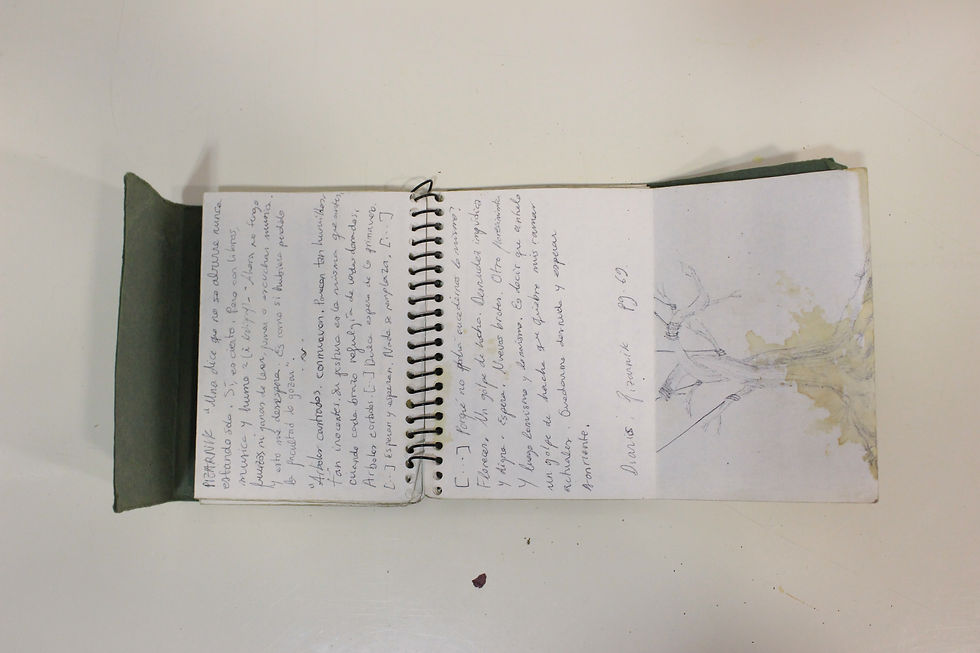 PIZARNIK "Una dice que no se aburre nunca
estando sola. Sí, es cierto. Pero con libros,
música y humo
buenos ni ganas de leer, fumar o escuchar música.
y esto me desespera. Es como si hubiera perdido
la facultad de gozar".
"Árboles cortados, conmueven. Parecen tan humildes,
tan inocentes. Su postura es la misma que antes,
cuando cada brazo refulgía de verdes dorados.
Árboles cortados. [...] Dulce espera de la primavera.
[...] Esperan y esperan. Nada los remplaza. [...]
[...] Porqué no podía sucedernos lo mismo?
Florecer. Un golpe de hacha. Desnudez ingrávida
y digna. Espera. Nuevos brotes. Otro florecimiento
y luego lo mismo y lo mismo. Es decir que anhelo
un golpe de hacha que quiebre mis ramas
actuales. Quedarme desnuda y esperar
sonriente.
Diarios. Pizarnik Pg. 69